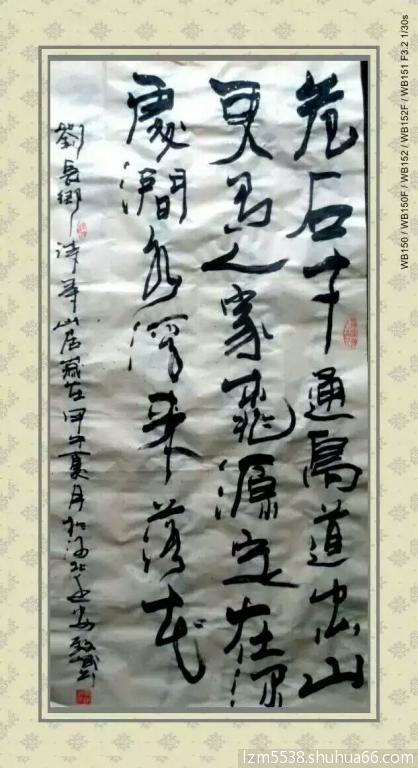 危石才通鳥道空山
更有人家桃源定在深
處澗水浮来落花
劉長卿詩尋山居 甲午夏月於河北
WB150 / WB150F / WB152 / WB152F / WB151 F3.2 1/30s
lzm5538.shuhua66.com